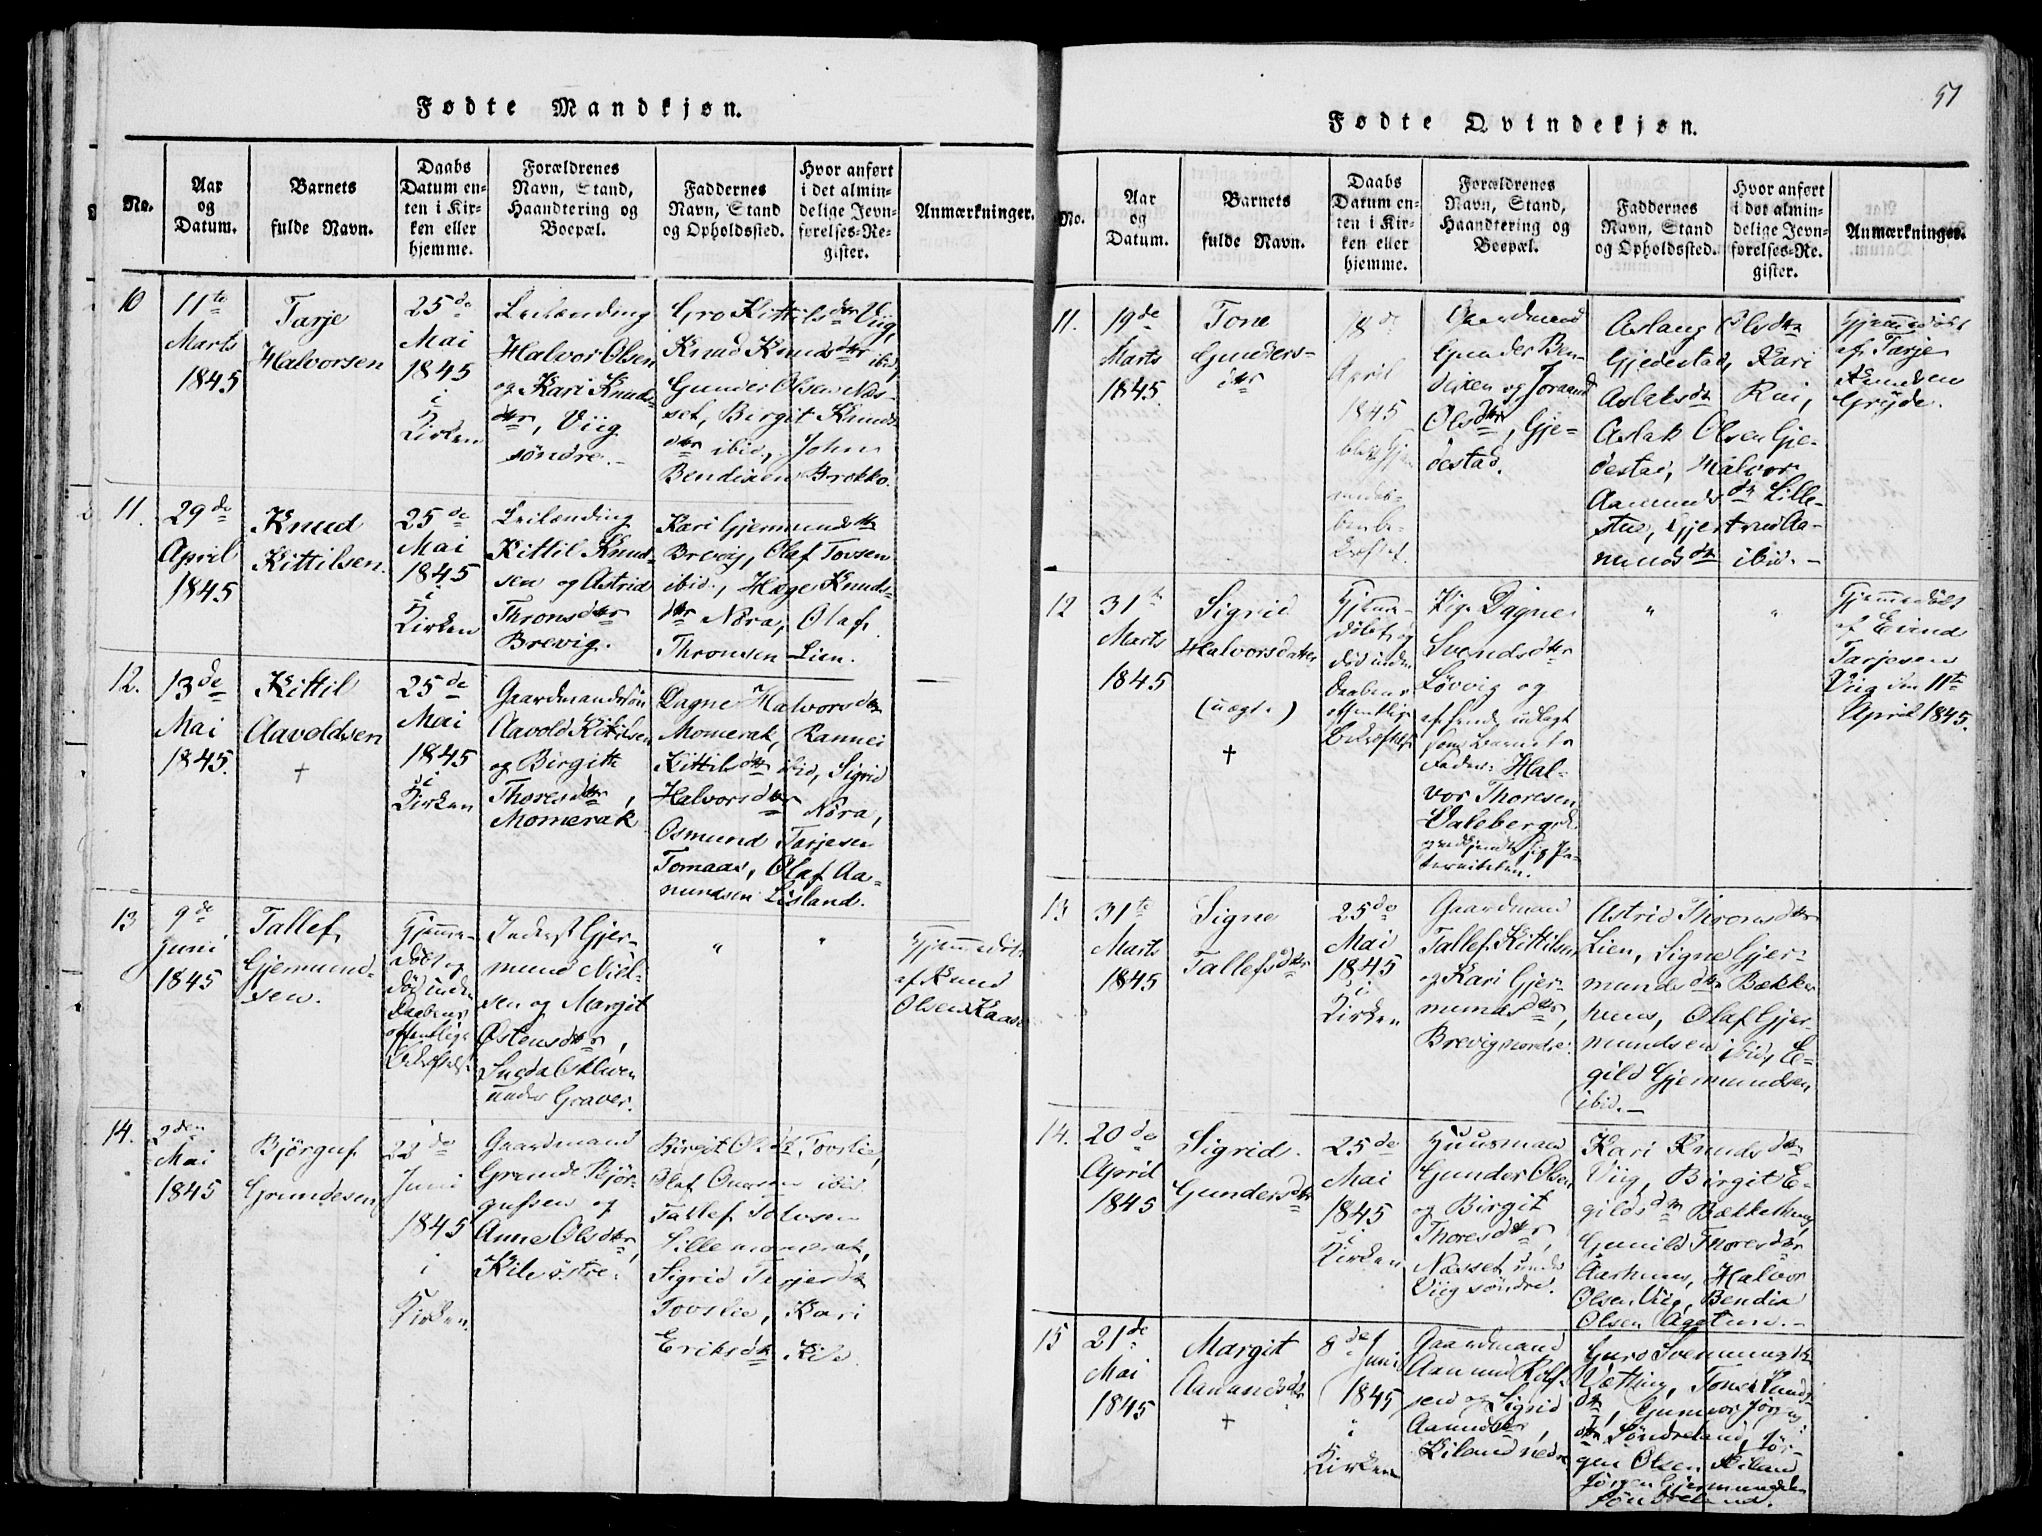 Fødte Mandkjøn.
No.
Aar
og
Datum.
Barnets
fulde Navn.
Daabs
Datum en-
ten i Kir-
ken eller
hjemme.
Forældrenes
Navn, Stand,
Haandtering og
Boepæl.
Faddernes
Navn, Stand
og Opholdssted.
Hvor anført
i det almin-
delige Jevn-
førelses-Re-
gister.
Anmærkninger.
10
11te
Marts
1845
Tarje
Halvorsen
25de
Mai
1845
i
Kirken
Leilænding
Halvor Olsen
og Kari Knuds-
dtr, Viig
søndre.
Gro Kittilsdtr Viig,
Knud Knudsdtr ibid,
Gunder Olsen Næs-
set, Birgit Knuds
dtr ibid, John
Bendixen Brokke.
11.
29de
April
1845
Knud
Kittilsen.
25de
Mai
1845
i
Kirken
Leilænding
Kittil Knud-
sen og Astrid
Thronsdtr
Brevig.
Kari Gjermundsdtr
Brevig, Olaf Tovsen
ibid., Hæge Knuds-
dtr Nøra, Olaf
Thronsen Lien.
12.
13de
Mai
1845.
Kittil
Aavoldsen
+
25de
Mai
1845
i
Kirken
Gaardmandssøn
Aavold Kittilsen
og Birgitte
Thoresdtr,
Momerak
Dagne Halvorsdtr
Momerak, Rannei
Kittilsdtr ibid, Sigrid
Halvorsdtr Nøra,
Osmund Tarjesen
Tomaas, Olaf Aa-
mundsen Lisland.
13
9de
Juni
1845
Tallef
Gjermund-
sen.
Hjemme-
døbt og
død inden
Daabens
offentlige
Bekræftelse
Inderst Gjer-
mund Niel-
sen og Margit
Østensdtr,
under Graver.
"
"
Hjemmedøbt
af Knud
Olsen Kaase
14.
2den
Mai
1845
Bjørguf
Grundesen
22de
Juni
1845
i
Kirken.
Gaardmand
Grunde Bjør-
gufsen og
Anne Olsdtr,
Kile østre.
Birgit Olsdtr Tovslie,
Olaf ibid
Tallef Tolvsen
Lillemomerak,
Sigrid Terjesdtr
Tovslie, Kari
Eriksdtr Kile.
51
Fødte Qvindekjøn.
No.
Aar
og
Datum.
Barnets
fulde Navn.
Daabs
Datum en-
ten i Kir-
ken eller
hjemme.
Forældrenes
Navn, Stand,
Haandtering og
Boepæl.
Faddernes
Navn, Stand
og Opholdssted.
Hvor anført
i det almin-
delige Jevn-
førelses-Re-
gister.
Anmærkninger.
11.
19de
Marts
1845.
Tone
Gunders-
dtr
18de
April
1845
Gaardmand
Gunder Ben-
dixen og Joraand
Olsdtr, Gje-
destad.
Aslaug Olsdtr
Gjedestad, Kari
Aslaksdtr Rui,
Aslak Olsen Gje-
destad, Halvor
Aamunds Lille-
stue, Gjertrud Aa-
mundsdtr ibid.
Hjemmedøbt
af Tarje
Knudsen
Gryde.
12
31te
Marts
1845
Sigrid
Halvorsdatter
(uægt.)
+
Hjemme-
døbt og
død inden
Daabens
offentlige
Bekræftelse
Pige Dagne
Svendsdtr
Løvvig og
af hende udlagt
som Barnets
Fader: Hal-
vor Thoresen
Valeberg,
vedkjender sig Pa-
terniteten.
"
"
Hjemmedøbt
af Eivind
Tarjesen
Viig den 11te
April 1845.
13
31te
Marts
1845
Signe
Tallefsdtr
25de
Mai
1845
i
Kirken
Gaardmand
Tallef Kittilsen
og Kari Gjer-
mundsdtr,
Brevig nordre.
Astrid Thronsdtr
Lien, Signe Gjer-
mundsdtr Bække
huus, Olaf Gjer-
mundsen ibid, E-
gild Gjermundsen
ibid.
14.
20de
April
1845
Sigrid
Gundersdtr
25de
Mai
1845
i
Kirken
Huusmand
Gunder Olsen
og Birgit
Thoresdtr,
Næsset under
Viig søndre.
Kari Knudsdtr
Viig, Birgit E-
gildsdtr Bækkehuus,
Gunild Thoresdtr
Aarhuus, Halvor
Olsen Viig, Bendix
Olsen Agetun.
15
21de
Mai
1845
Margit
Aanundsdtr
+
8de
Juni
1845
i
Kirken
Gaardmand
Aanund Rolf-
sen og Sigrid
Aanundsdtr,
Kiland nedre
Guro Svenningsdtr
Vætting, Tone Knuds-
dtr, Gunvor Jørgens-
dtr Søndreland, Jør-
gen Olsen Kiland
Jørgen Gjermundsen
Søndreland.